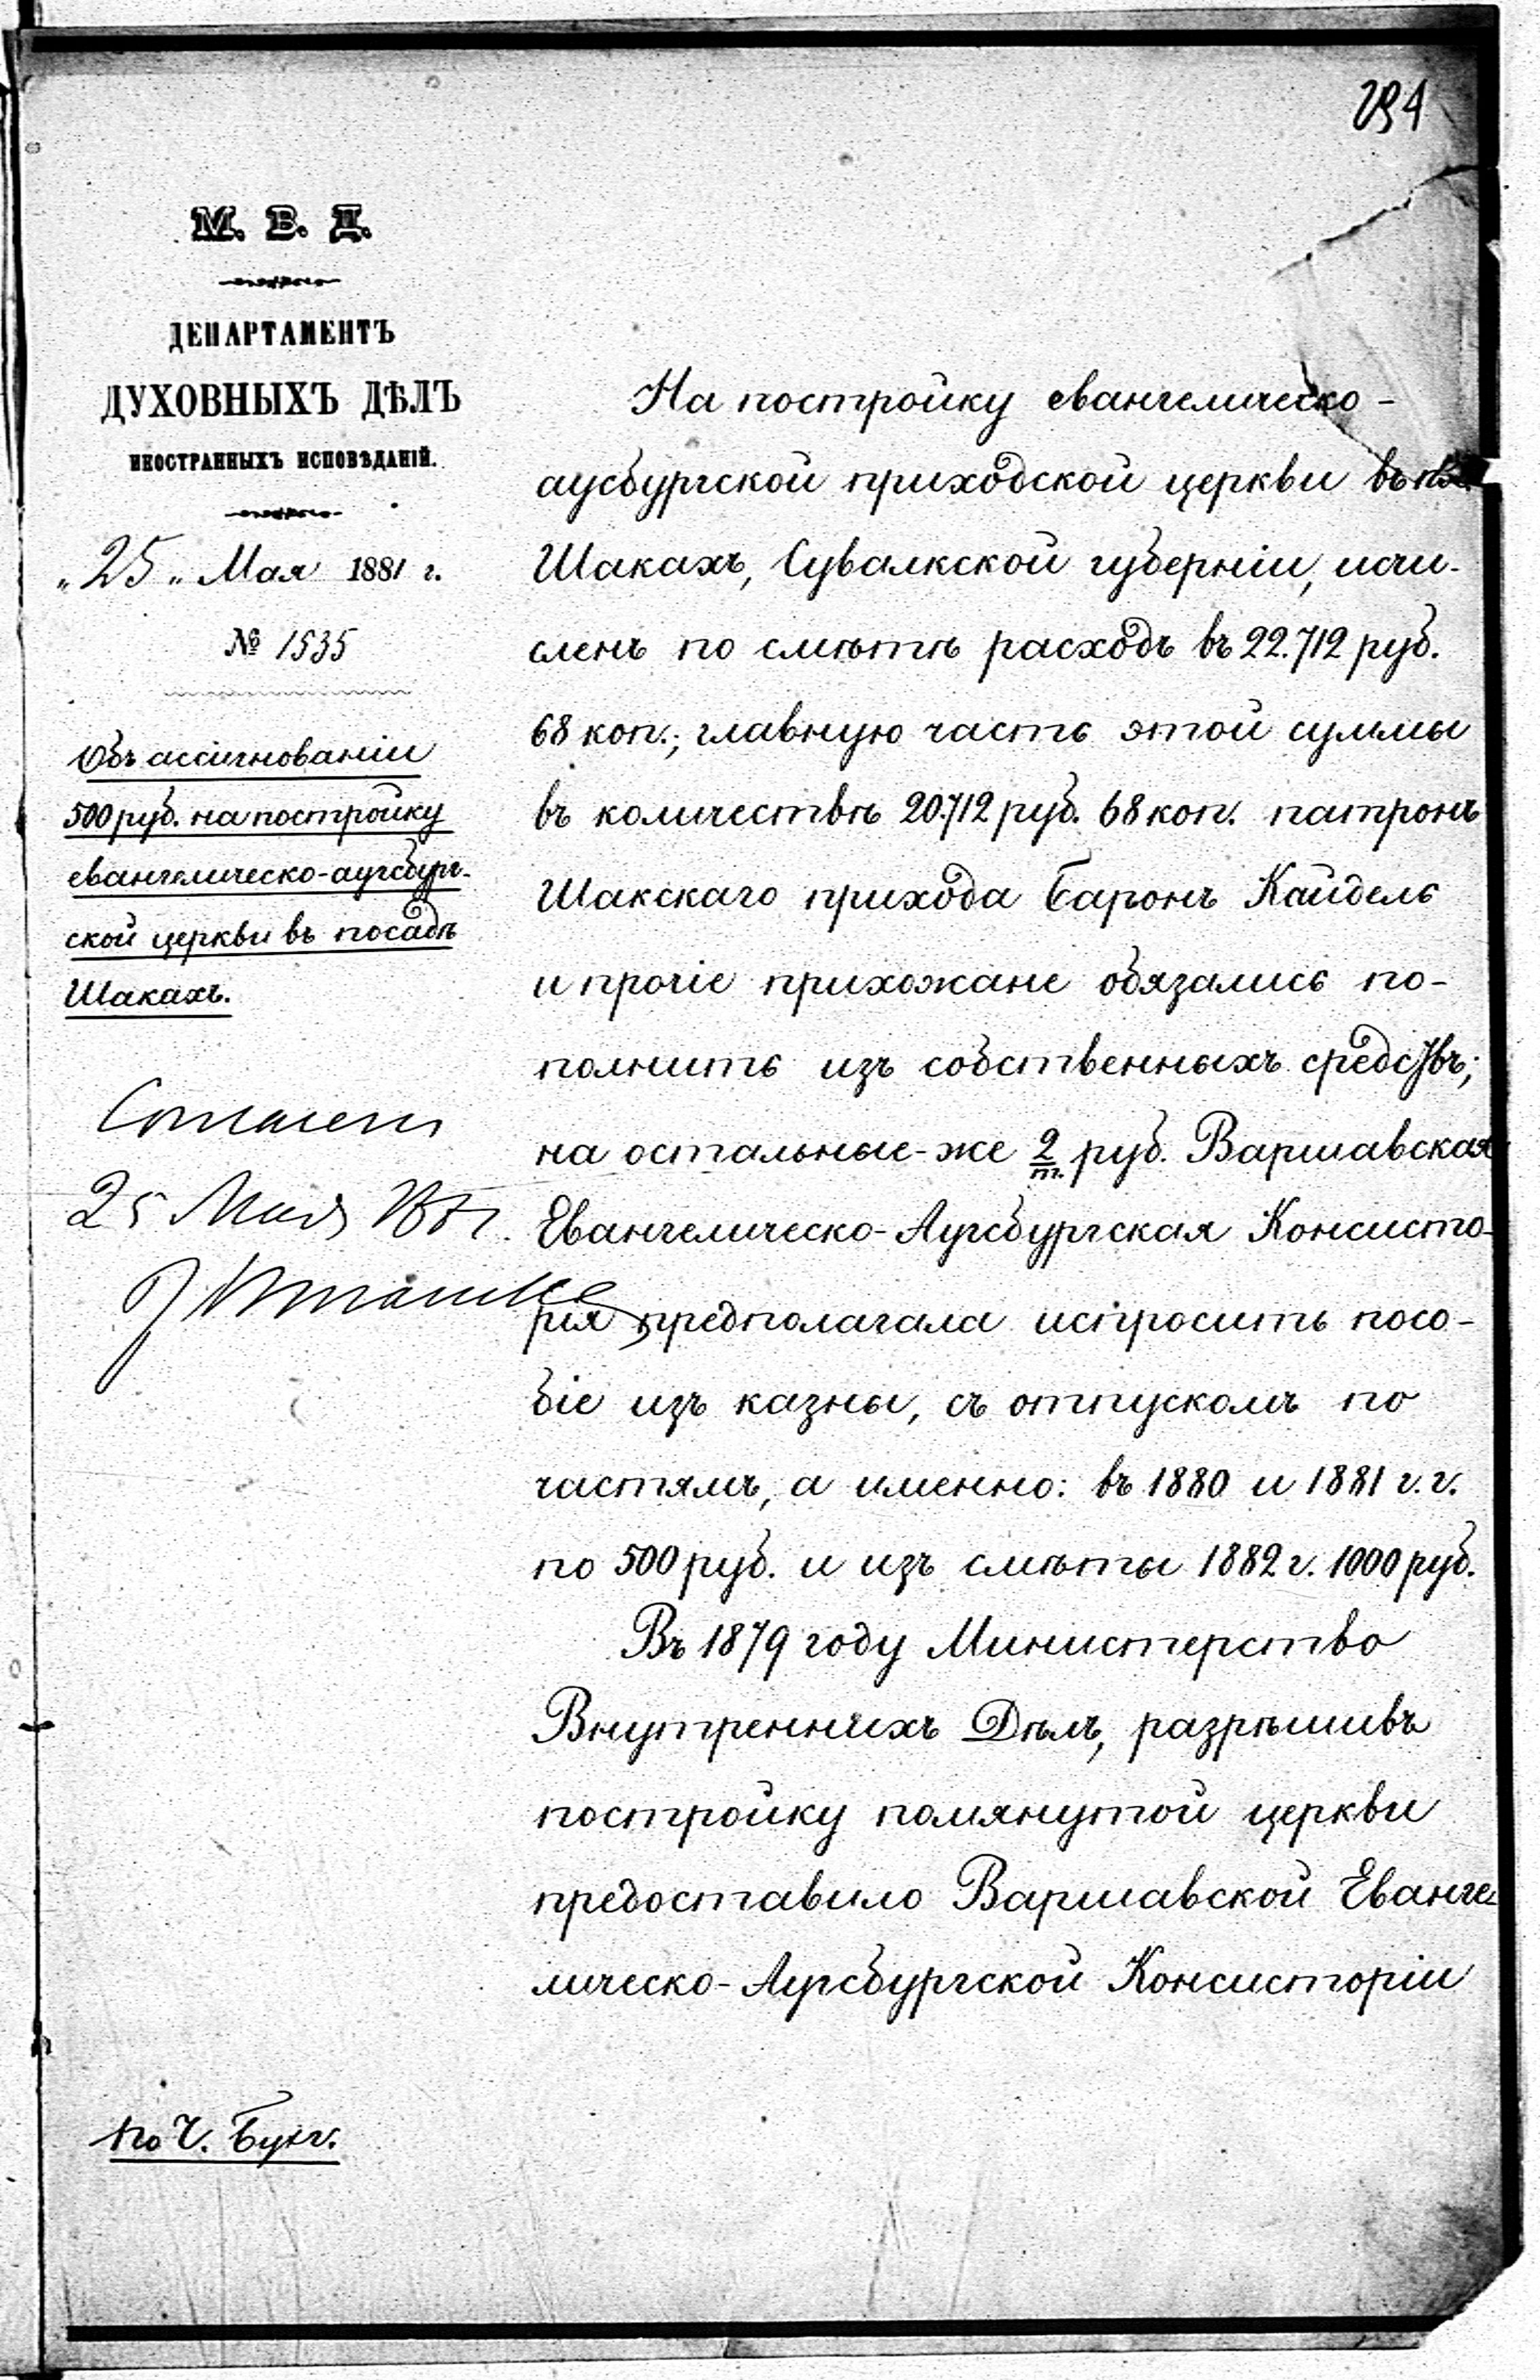 М. В. Д.
ДЕПАРТАМЕНТЪ
ДУХОВНЫХЪ ДѢЛЪ
ИНОСТРАННЫХЪ ИСПОВѢДАНІЙ.
„25„ Мая 1881 г.
№ 1535
Объ ассигнованіи
500 руб. на постройку
евангелическо-аугсбург-
ской церкви въ посадѣ
Шакахъ.
25 Мая
По Ч. Бухг.
На постройку евангелическо-
аусбургской приходской церкви въ
Шакахъ, Сувалкской губерніи, исчи-
сленъ по смѣтѣ расходъ въ 22.712 руб.
68 коп.; главную часть этой суммы
въ количествѣ 20.712 руб. 68 коп. патронъ
Шакскаго прихода Баронъ Кайдель
и прочіе прихожане обязались по-
полнить изъ собственныхъ средствъ;
на остальные-же 2 т. руб. Варшавская
Евангелическо-Аугсбургская Консисто-
рія предполагала испросить посо-
біе изъ казны, съ отпускомъ по
частямъ, а именно: въ 1880 и 1881 г.г.
по 500 руб. и изъ смѣты 1882 г. 1000 руб.
Въ 1879 году Министерство
Внутреннихъ Дѣлъ, разрѣшивъ
постройку помянутой церкви
предоставило Варшавской Еванге-
лическо-Аугсбургской Консисторіи